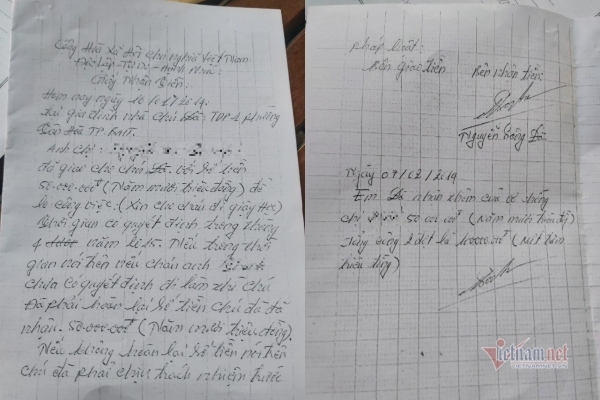 Cộng Hòa Xã Hội Chủ Nghĩa Việt Nam
Độc Lập - Tự Do - Hạnh Phúc
Giấy Nhận Tiền
Hôm nay ngày 16/1/2014.
Tại gia đình nhà chú TDP-4 Phường
Tân Hòa TP. BMT.
Anh chị:
đã giao cho chú Đã với số tiền
50.000.000đ (Năm mươi triệu đồng) để
lo công việc. (Xin cho cháu đi giấy
Thời gian có quyết định trong tháng
4 năm Nếu trong thời
gian nói trên nếu cháu anh
chưa có quyết định đi làm thì chú
Đã phải hoàn lại số tiền chú đã đã
nhận. 50.000.000đ (Năm mươi triệu đồng).
Nếu không hoàn lại số tiền nói trên
chú đã phải chịu trách nhiệm trước
pháp luật.
Bên giao tiền Bên nhận tiền
Nguyễn Hồng
Ngày 09/02/2014
Em nhận thêm của vợ chồng
chị 50.000.000đ (Năm mươi triệu đồng)
Tổng cộng 2 đợt là (Một trăm
triệu đồng)
Vietnamnet
VIETNAMNET.VN